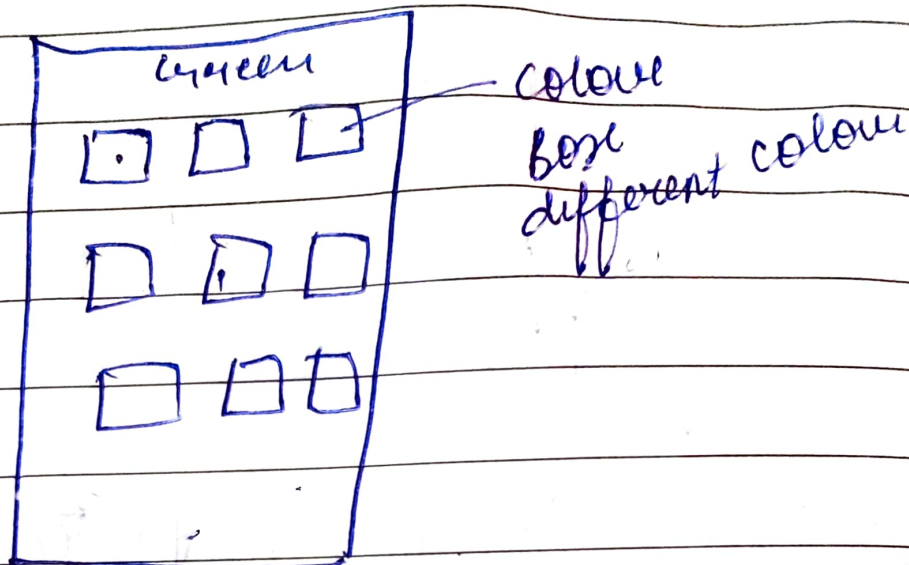 screen
colour
Box
different colour